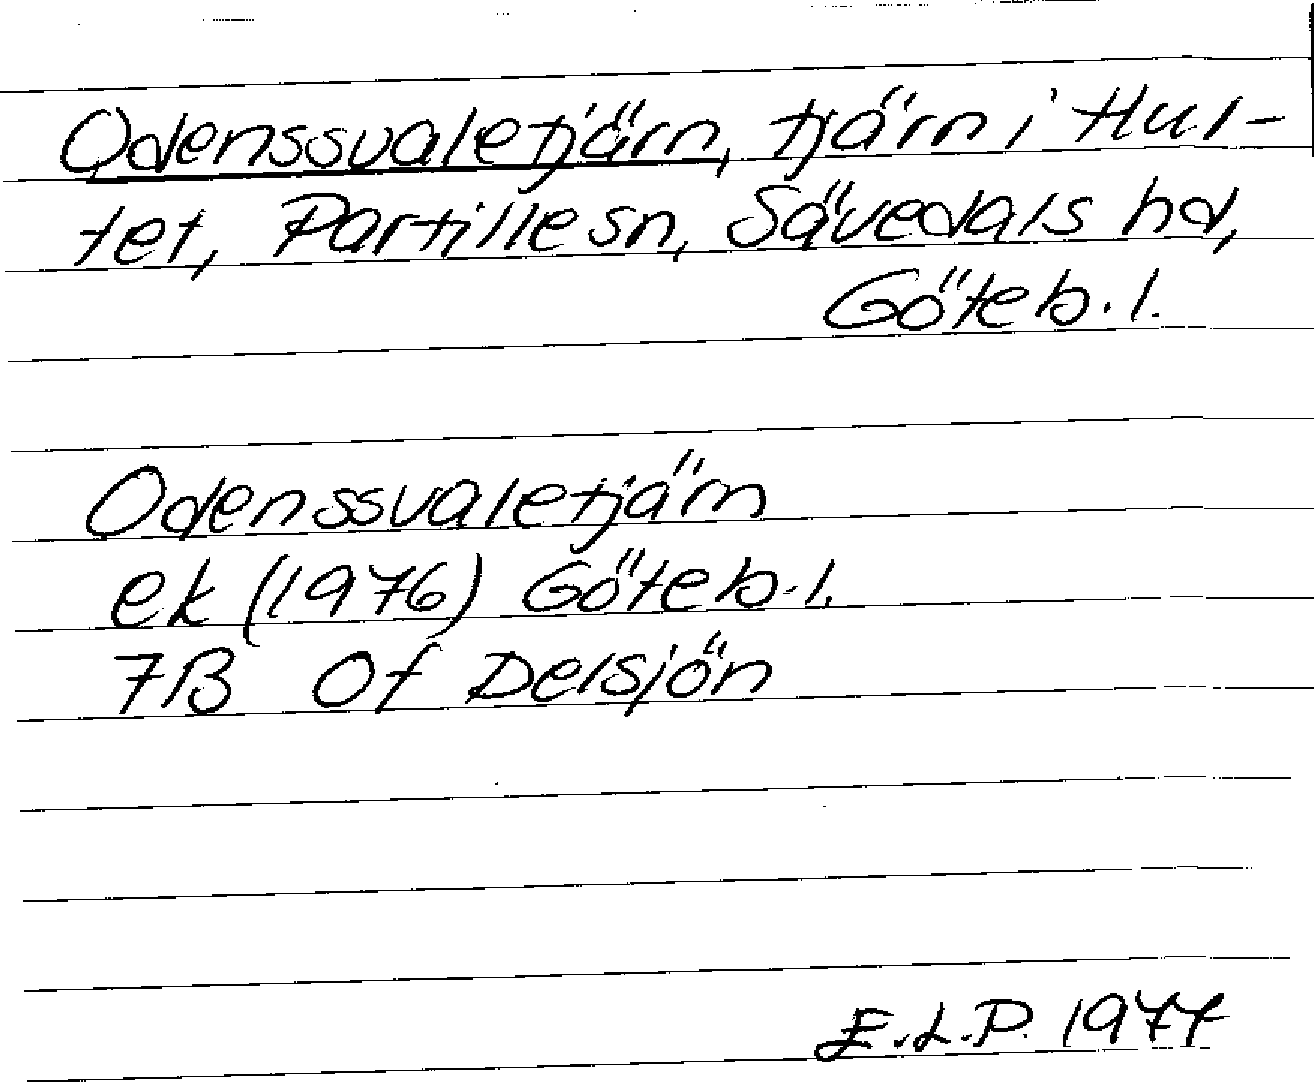 Odenssvaletjärn, tjärn i Hul-
tet, Partille sn, Sävedals hd,
Göteb. l.
Odenssvaletjärn
ek (1976) Göteb. l.
7B 0f Delsjön
E.L.P. 1977